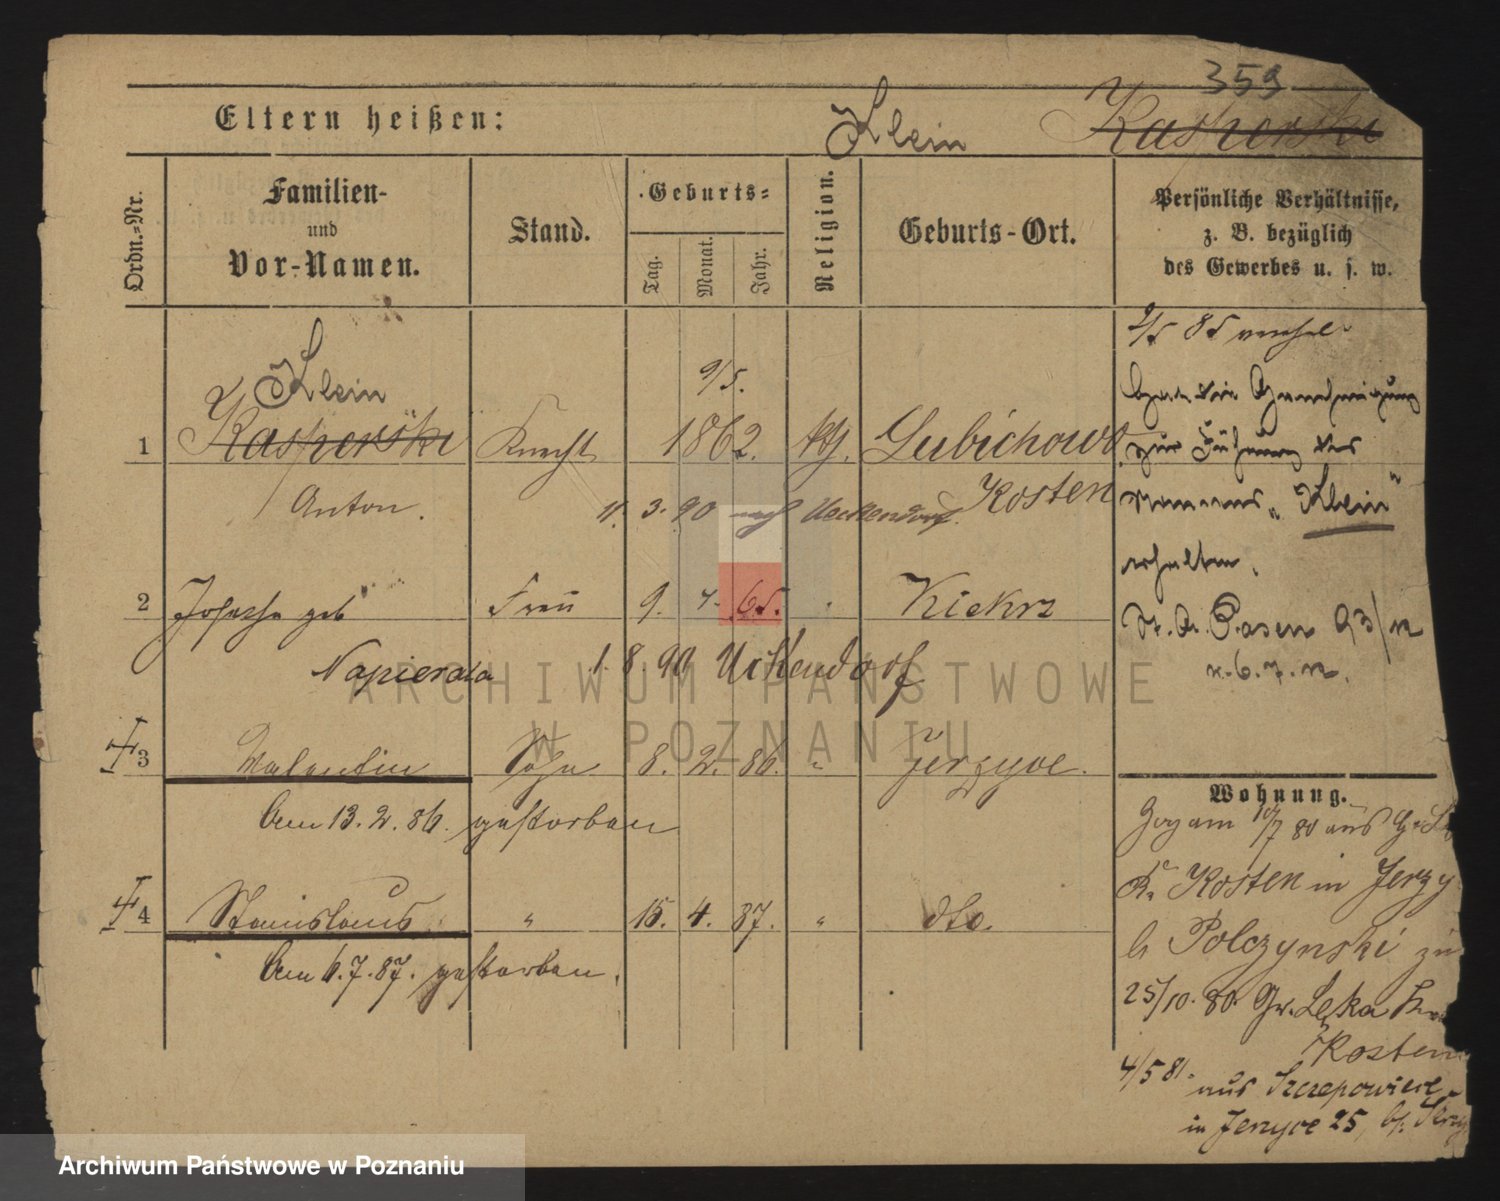 359
Eltern heißen: Klein Kasperski
Ordn.-Nr.
Familien- und Vor-Namen.
Stand.
Geburts=
Tag. Monat. Jahr.
Religion.
Geburts-Ort.
Persönliche Verhältnisse,
z. B. bezüglich
des Gewerbes u. s. w.
Klein 9/5.
1 Kasperski Knecht 1862. kth. Lubichowo
Anton. Kosten
11. 3. 90 nach Ueckendorf.
2 Josepha geb Frau 9. 4. 65. " Kiekrz
Napierala 1. 8. 90 Uckendorf
3 Valentin Sohn 8. 2. 86. " Jerzyce.
Am 13. 2. 86. gestorben
4 Stanislaus " 15. 4. 87. " dto.
Am 6. 7. 87. gestorben.
2/5 85
Hat die Genehmigung
zur Führung des
Namens „Klein"
erhalten.
Posen 93/12
v. 6. 7. 12.
Wohnung.
Zog am 10/7 80 aus
Kr. Kosten in Jerzy
b Polczynski zu
25/10. 80. Gr. Lęka
Kosten
4/5 81. aus Szczepowice
in Jerzyce 25, bei
ARCHIWUM PAŃSTWOWE
W POZNANIU
Archiwum Państwowe w Poznaniu